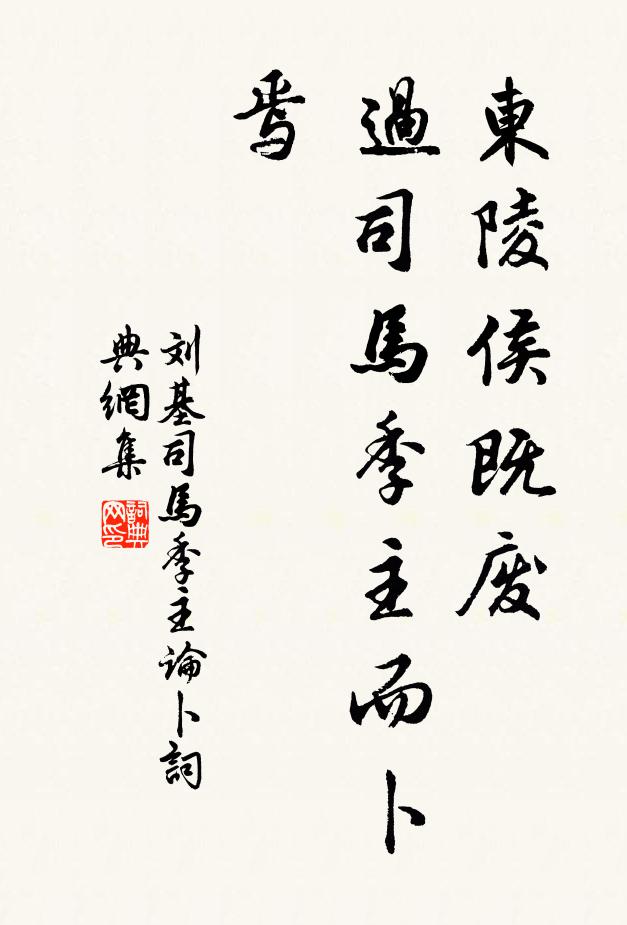 東陵侯既废
過司馬季主而卜
焉
刘基司馬季主論卜詞
典網集
詞典
网印